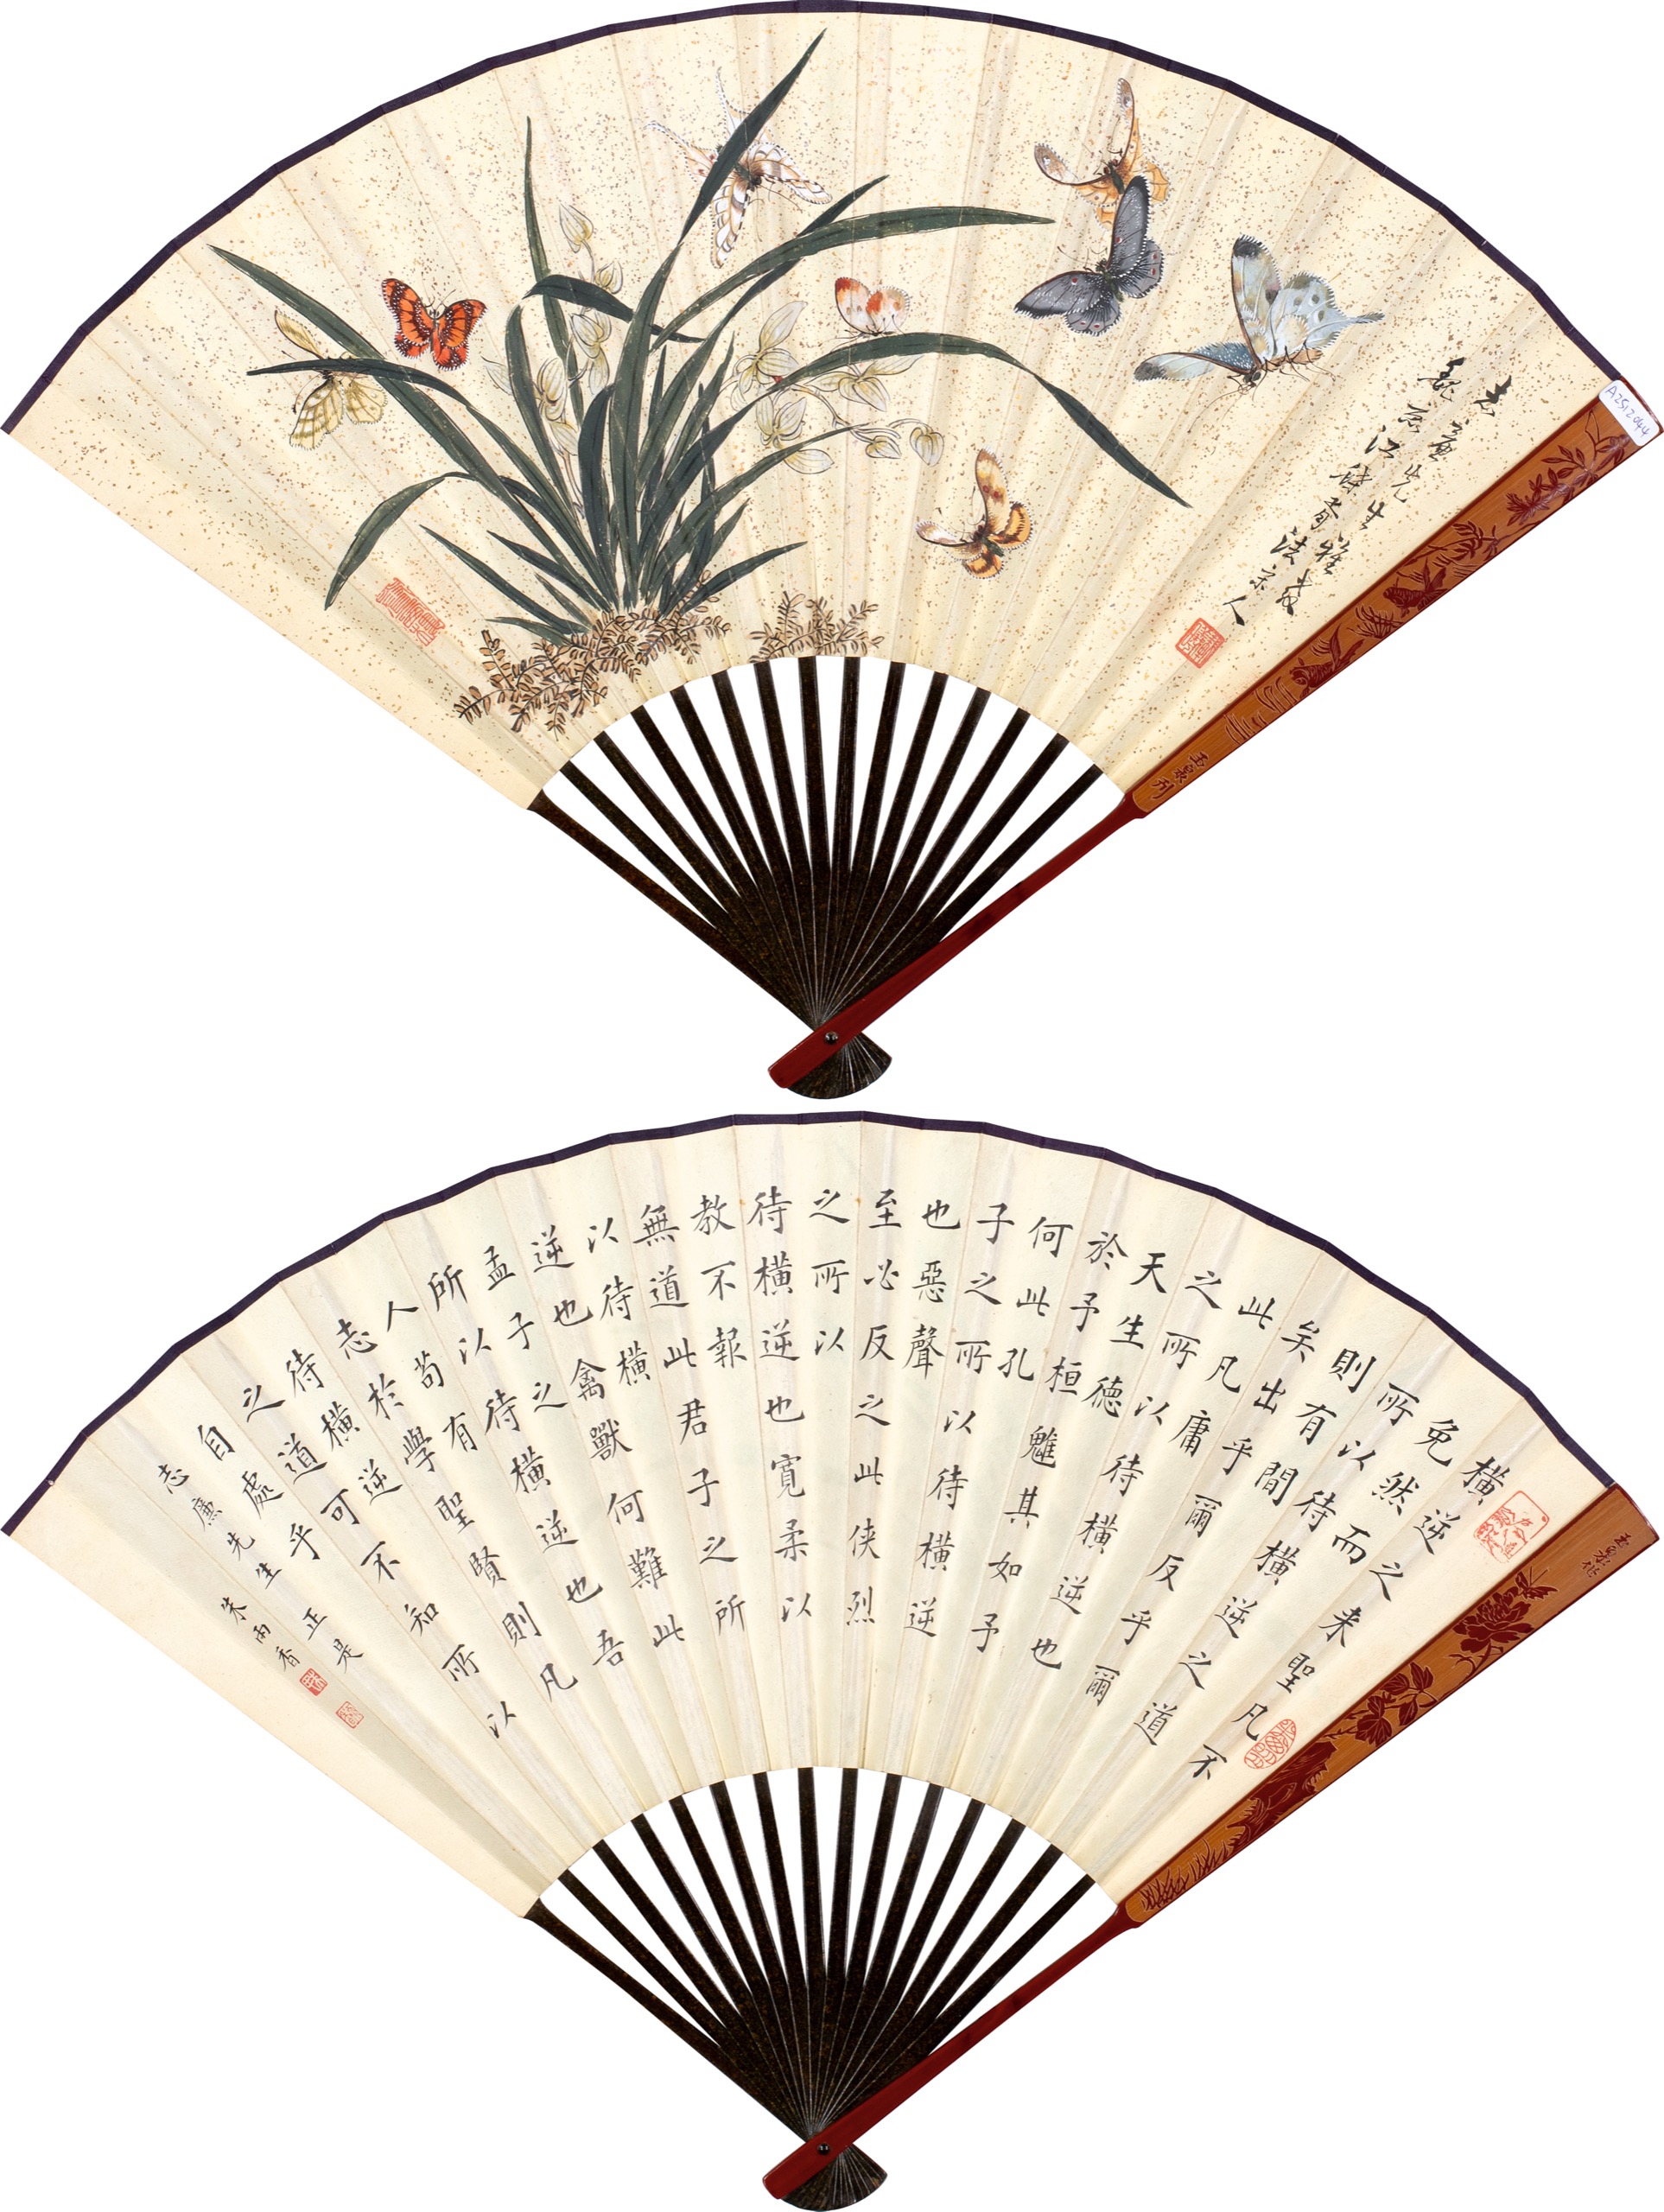 志廉先生雅教
A2512044
橫逆之來聖凡不
免然而
所以待橫逆之道
則有間
矣出乎爾反乎爾
此凡庸
之所以待橫逆也
天生德
於予桓魋其如予
何此孔
子之所以待橫逆
也惡聲
至必反之此俠烈
之所以
待橫逆也寬柔以
教不報
無道此君子之所
以待橫
逆也禽獸何難此
孟子之
所以待橫逆也吾
人苟有
志於學聖賢則凡
待橫逆
之道可不知所以
自處乎
志廉先生 正是
朱雨香